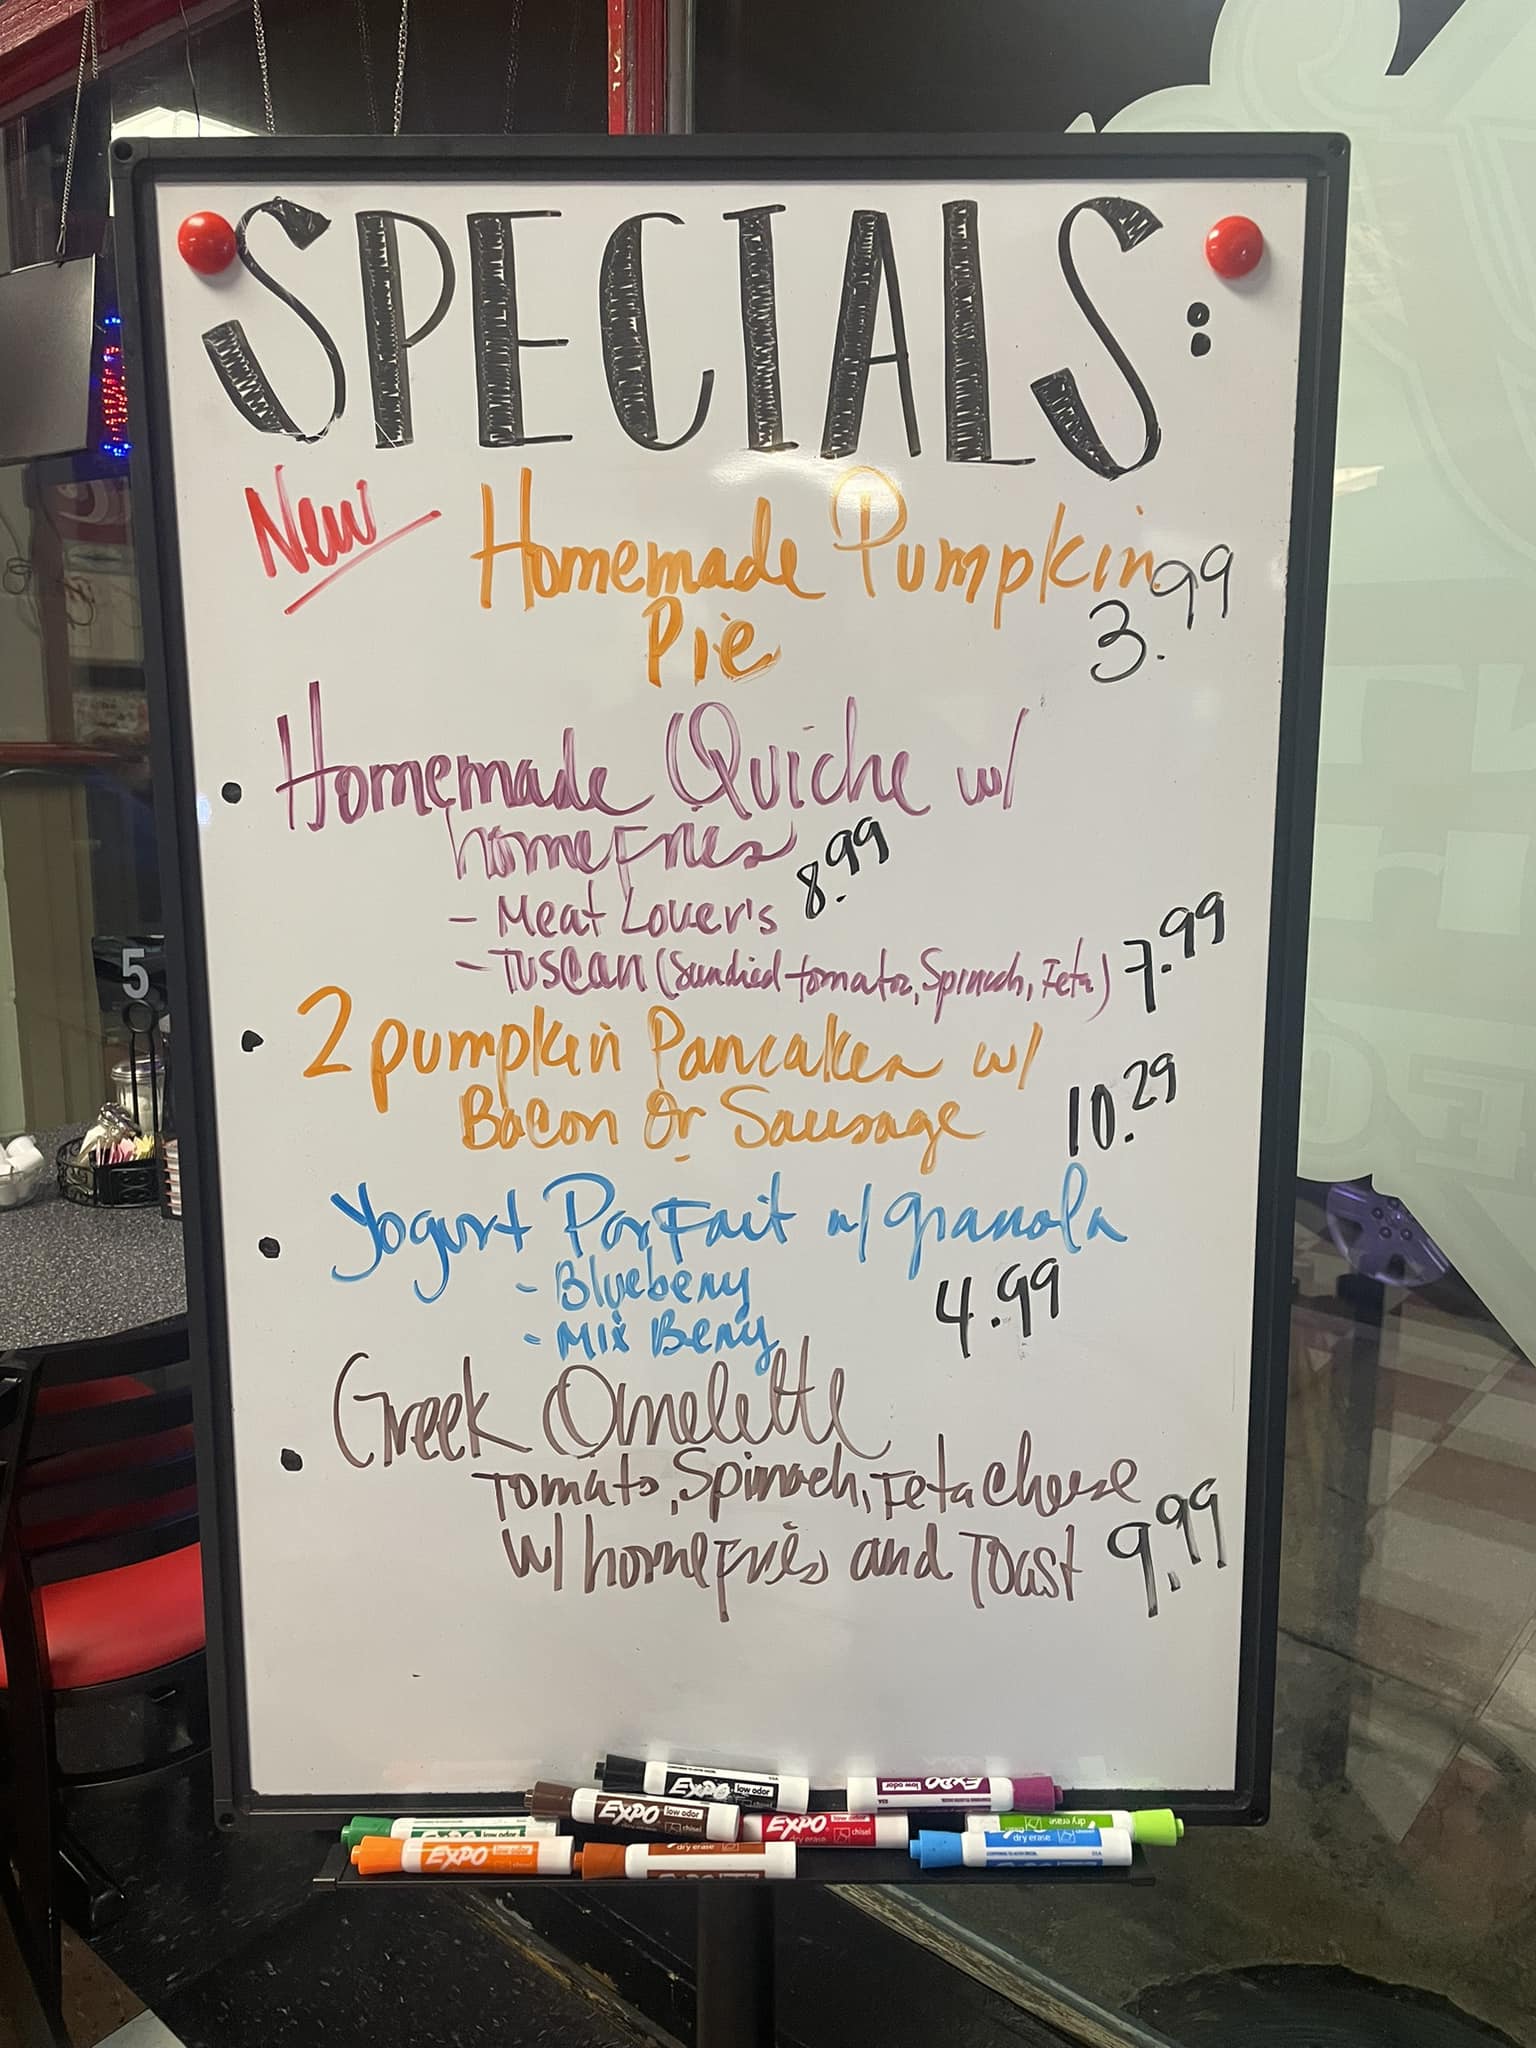 SPECIALS:
New Homemade Pumpkin
Pie 3.99
• Homemade Quiche w/
homefries
- Meat Lover's 8.99
- Tuscan (Sundried tomatoe, Spinach, Feta) 7.99
• 2 pumpkin Pancakes w/
Bacon or Sausage 10.29
• Yogurt Parfait w/ granola
- Blueberry 4.99
- Mix Berry
• Greek Omelette
Tomato, Spinach, Feta Cheese
w/ homefries and Toast 9.99
5
EXPO low odor
EXPO low odor
EXPO low odor chisel
EXPO dry erase
dry erase
EXPO low odor
EXPO
dry erase
dry erase